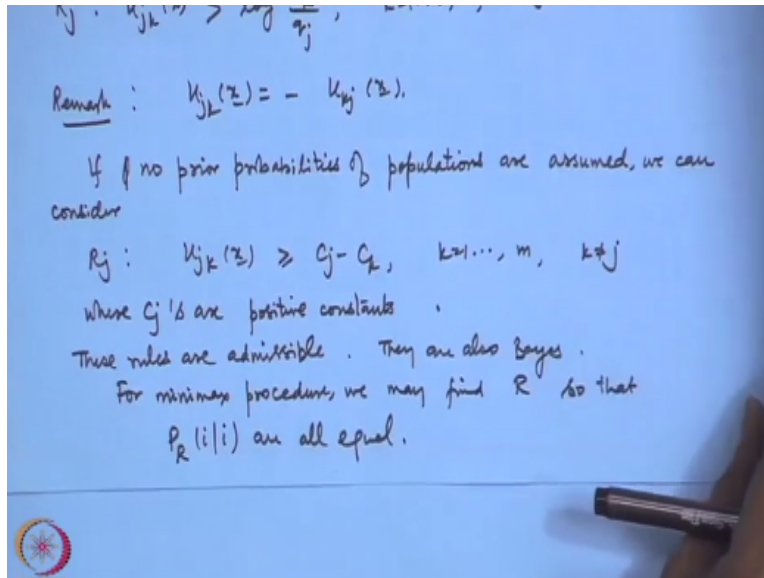 Rj : Ujk(x) ≥ log qk/qj, k=1,...,
Remark : Ujk(x) = - Ukj(x).
If no prior probabilities of populations are assumed, we can
consider
Rj : Ujk(x) ≥ Cj - Ck, k=1..., m, k≠j
where Cj's are positive constants .
These rules are admissible . They are also Bayes .
For minimax procedure, we may find R so that
PR(i|i) are all equal.